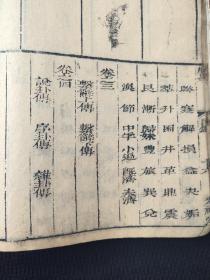 睽蹇解損益夬姤
萃升困井革鼎震
艮漸歸妹豐旅巽兌
渙節中孚小過既濟未濟
卷三
繫辭上傳 繫辭下傳
卷四
說卦傳 序卦傳 雜卦傳